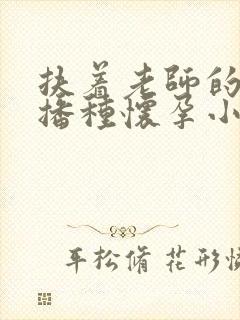 扶着老師的
播種懷孕小
平松脩 花形憐